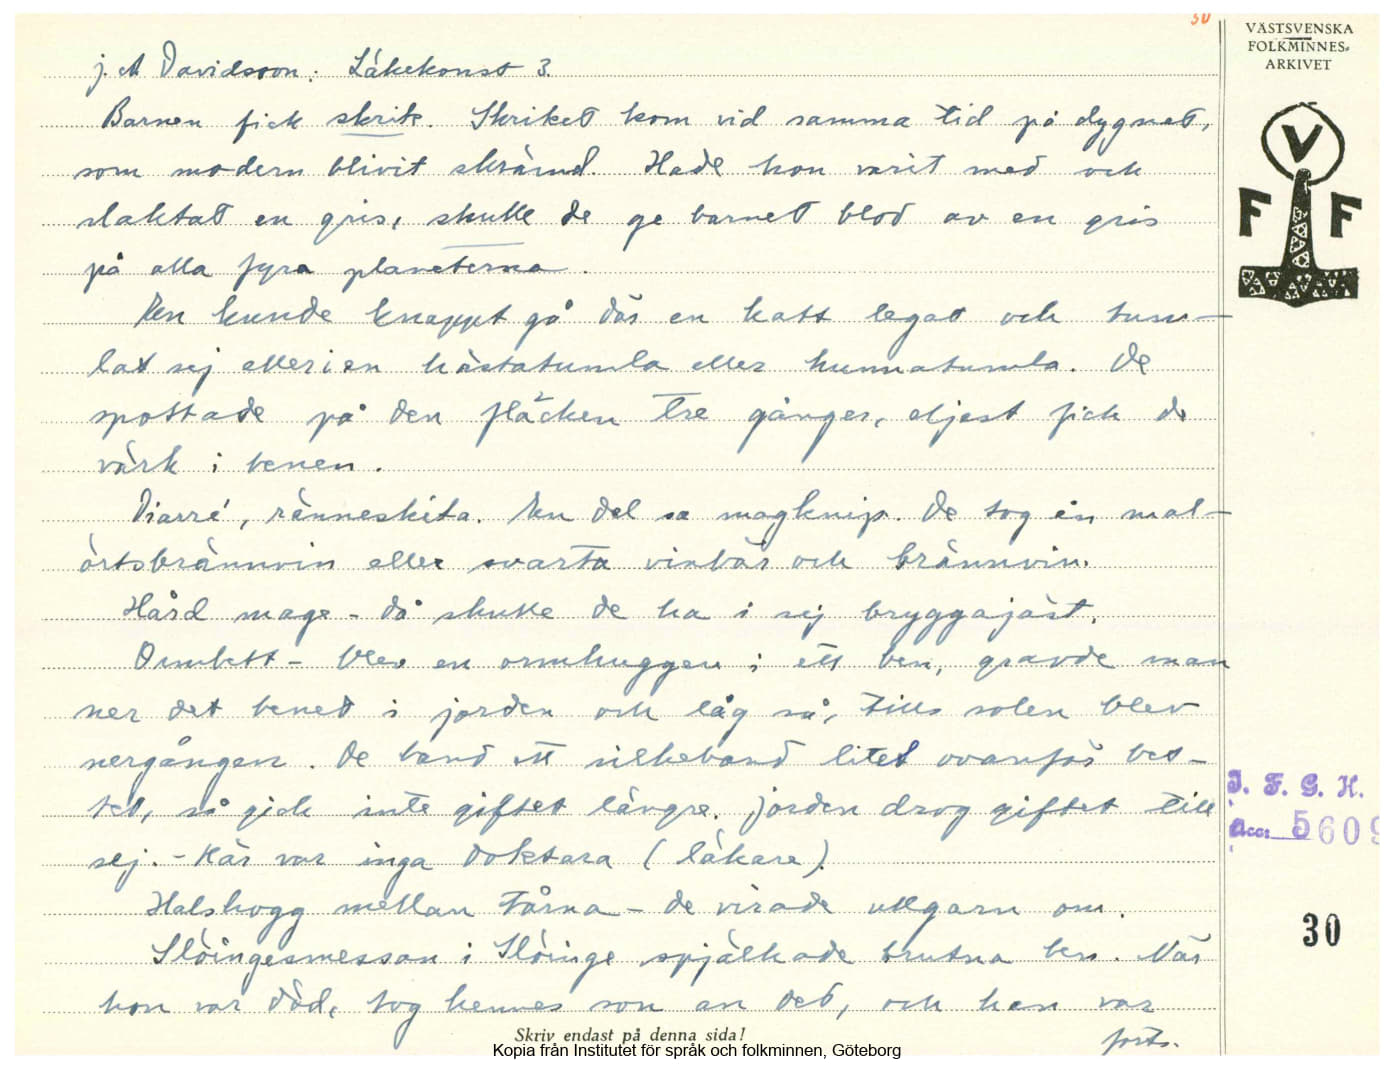 30
VÄSTSVENSKA
FOLKMINNES-
ARKIVET
V
F F
J. A Davidsson: Läkekonst 3.
Barnen fick skrik. Skriket kom vid samma tid på dygnet,
som modern blivit skrämd. Hade hon varit med och
slaktat en gris, skulle de ge barnet blod av en gris
på alla fyra planeterna.
Den kunde knappt gå där en katt legat och tum-
lat sej eller i en hästatumla eller hunnatumla. De
spottade på den fläcken tre gånger, eljest fick de
värk i benen.
Diarré, ränneskita. En del sa magknip. De tog in mal-
örtsbrännvin eller svarta vinbär och brännvin.
Hård mage - då skulle de ha i sej bryggajäst.
Ormbett - blev en ormhuggen i ett ben, gravde man
ner det benet i jorden och låg så, tills solen blev
nergången. De band ett silkeband litet ovanför bet-
tet, så gick inte giftet längre. Jorden drog giftet till
sej. - Här var inga doktara (läkare).
Halshogg mellan tårna - de virade ullgarn om.
Slöingesmessan i Slöinge spjälkade brutna ben. När
hon var död, tog hennes son an det, och han var
forts.
J. F. G. H.
Acc. 5609
30
Skriv endast på denna sida!
Kopia från Institutet för språk och folkminnen, Göteborg